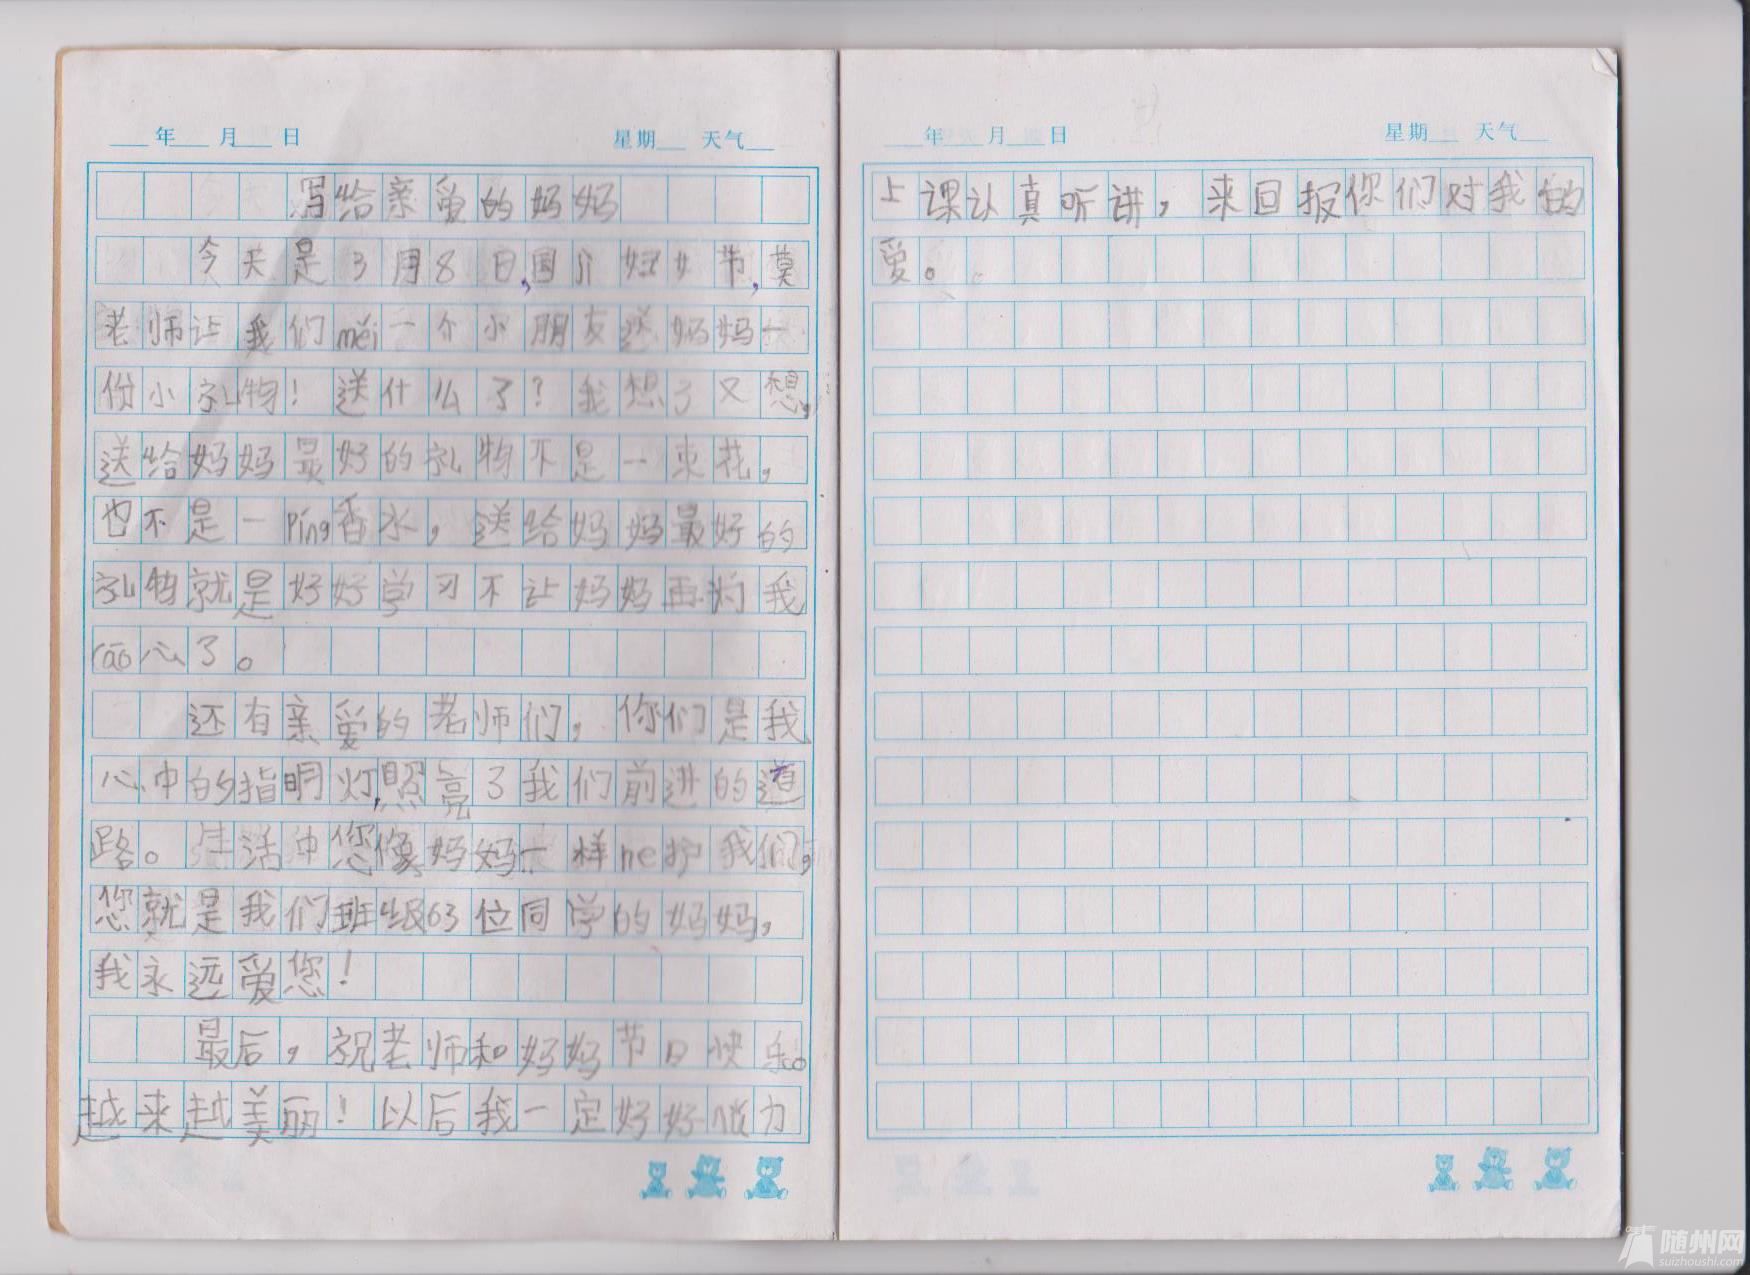 年 月 日 星期 天气
写给亲爱的妈妈
今天是3月8日,国介妇女节,莫
老师让我们měi一个小朋友送妈妈一
份小礼物!送什么了?我想了又想,
送给妈妈最好的礼物不是一束花,
也不是一píng香水,送给妈妈最好的
礼物就是好好学习不让妈妈再为我
cāo心了。
还有亲爱的老师们,你们是我
心中的指明灯,照亮了我们前进的道
路。生活中您像妈妈一样he护我们,
您就是我们班级63位同学的妈妈,
我永远爱您!
最后,祝老师和妈妈节日快乐。
越来越美丽!以后我一定好好 力
年 月 日 星期 天气
上课认真听讲,来回报你们对我的
爱。
随州网
suizhoushi.com